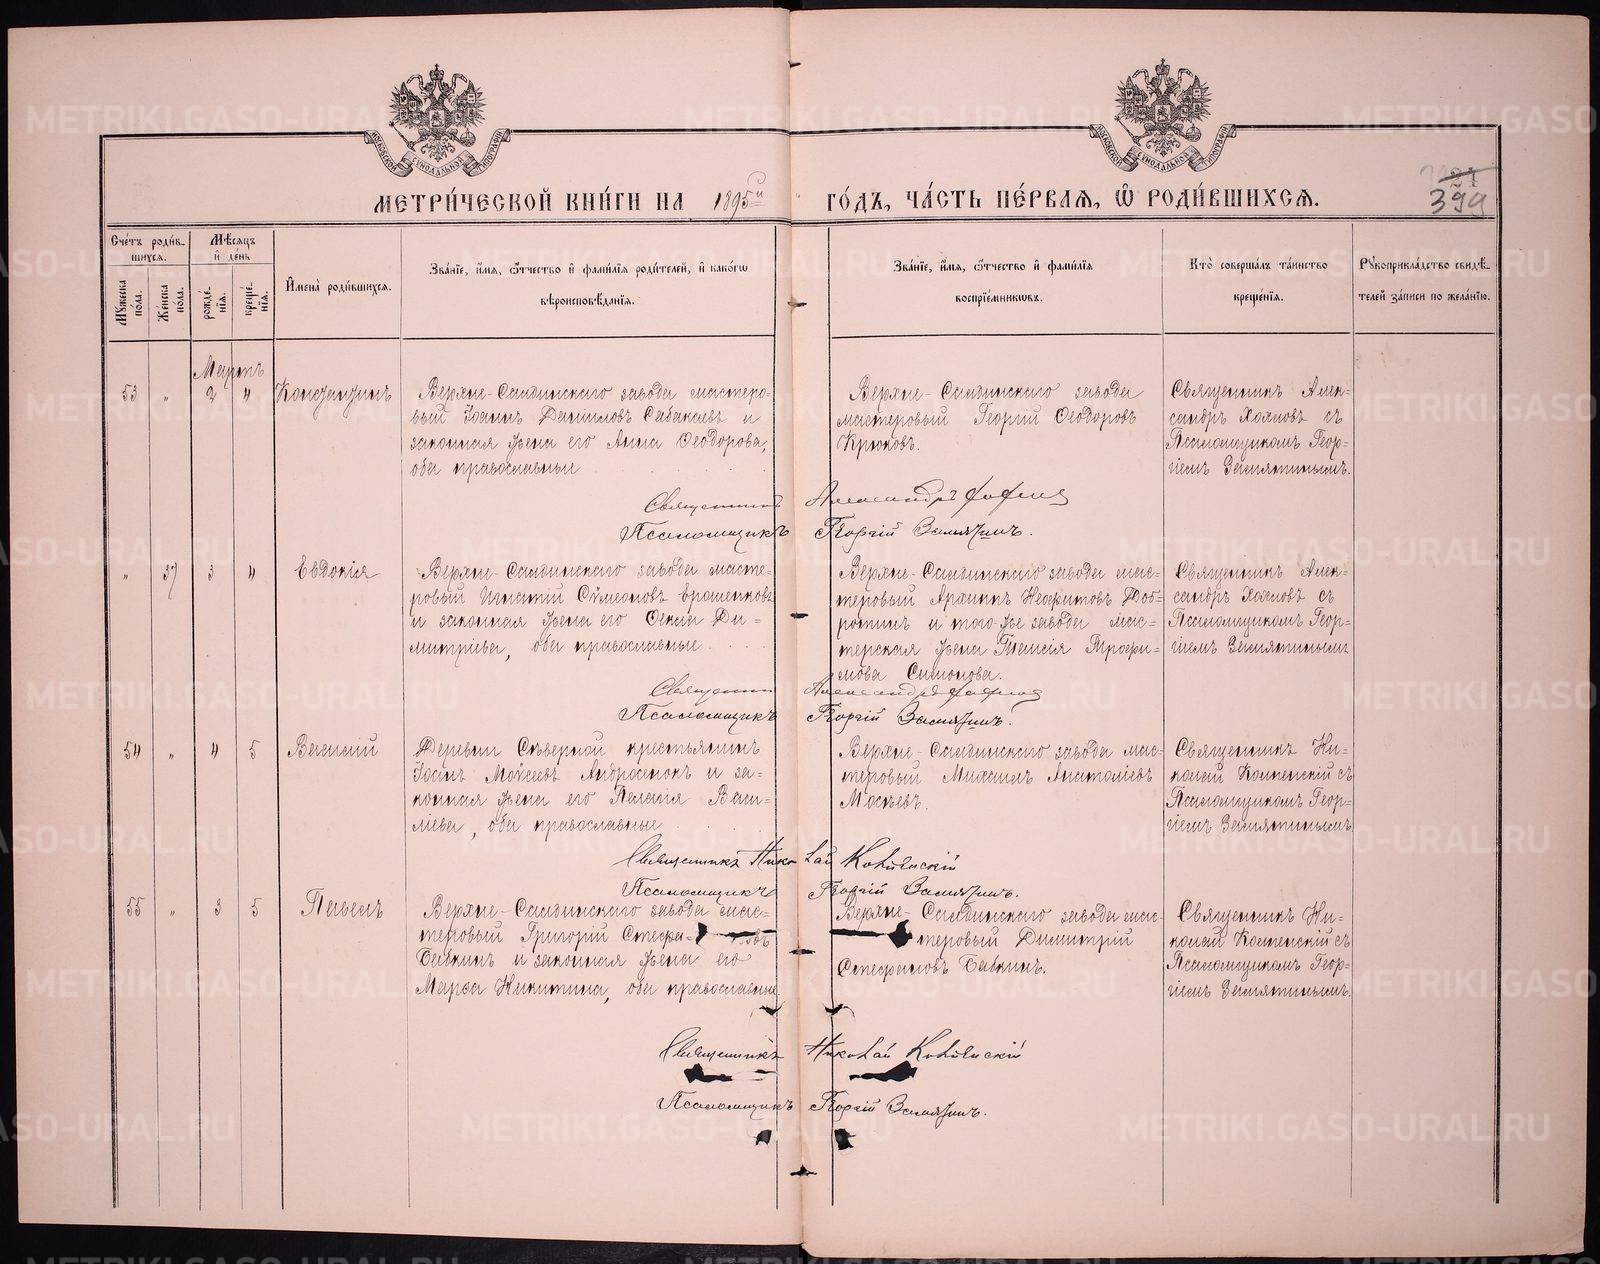 МОСКОВСКОЙ СУНОДАЛЬНОЙ ТИПОГРАФІИ
МОСКОВСКОЙ СУНОДАЛЬНОЙ ТИПОГРАФІИ
МЕТРИ́ЧЕСКОЙ КНИ́ГИ НА 1895й ГО́ДЪ, ЧА́СТЬ ПЕ́РВАѦ, Ѡ РОДИ́ВШИХСѦ.
399
Сче́тъ роди́вшихсѧ.
Мѣ́сѧцъ и҆ де́нь
Мꙋ́жеска по́ла.
Же́нска по́ла.
рожде́нїѧ.
креще́нїѧ.
И҆мена̀ роди́вшихсѧ.
Зва́нїе, и҆́мѧ, ѻ҆́тчество и҆ фами́лїѧ роди́телей, и҆ како́гѡ
вѣроисповѣ́данїѧ.
Зва́нїе, и҆́мѧ, ѻ҆́тчество и҆ фами́лїѧ
воспрїе́мникѡвъ.
Кто̀ соверша́лъ та́инство
креще́нїѧ.
Рꙋкоприкла́дство свидѣ́телей за́писи по жела́нїю.
Мартъ
53 " 2 4 Константинъ
Верхне-Салдинскаго завода мастеро-
вый Іоаннъ Даніиловъ Сабакаевъ и
законная жена его Анна Ѳеодорова,
оба православные
Верхне-Салдинскаго завода
мастеровый Георгій Ѳеодоровъ
Крюковъ.
Священникъ Алек-
сандръ Хохловъ съ
Псаломщикомъ Геор-
гіемъ Замятинымъ.
Священникъ Александръ
Псаломщикъ Георгій Замятинъ.
" 37 3 4 Евдокія
Верхне-Салдинскаго завода масте-
ровый Игнатій Сѵмеоновъ Ерошенковъ
и законная жена его Ди-
митріева, оба православные
Верхне-Салдинскаго завода мас-
теровый Архипъ Неофитовъ Доб-
рынинъ и того-же завода мас-
терская жена Таисія Трофи-
мова Симонова.
Священникъ Алек-
сандръ Хохловъ съ
Псаломщикомъ Геор-
гіемъ Замятинымъ
Священникъ Александръ
Псаломщикъ Георгій Замятинъ.
54 " 4 5 Василій
Деревни Сѣверной крестьянинъ
Іосифъ Моѵсеевъ Андросенокъ и за-
конная жена его Пелагія Васи-
ліева, оба православные
Верхне-Салдинскаго завода мас-
теровый Михаилъ Анатоліевъ
Моснъевъ.
Священникъ Ни-
колай Копенскій съ
Псаломщикомъ Геор-
гіемъ Замятинымъ
Священникъ Николай
Псаломщикъ Георгій Замятинъ.
55 " 3 5 Павелъ
Верхне-Салдинскаго завода мас-
теровый Григорій Стефановъ
Бабкинъ и законная жена его
Марѳа Никитина, оба православные
Верхне-Салдинскаго завода мас-
теровый Димитрій
Стефановъ Бабкинъ.
Священникъ Ни-
колай Копенскій съ
Псаломщикомъ Геор-
гіемъ Замятинымъ.
Священникъ Николай
Псаломщикъ Георгій Замятинъ.
METRIKI.GASO-URAL.RU